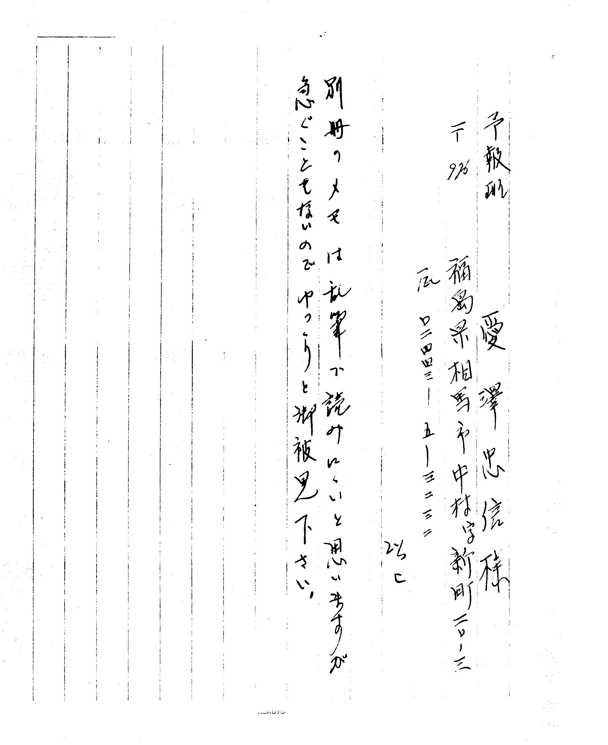 予報班 愛澤忠信様
〒976 福島県相馬市中村字新町二〇一三
〇二四四三一五一三二三二
別冊のメモは乱筆で読みにくいと思いますが
急ぐこともないのでゆっくりと御被見下さい。
KOKUYO